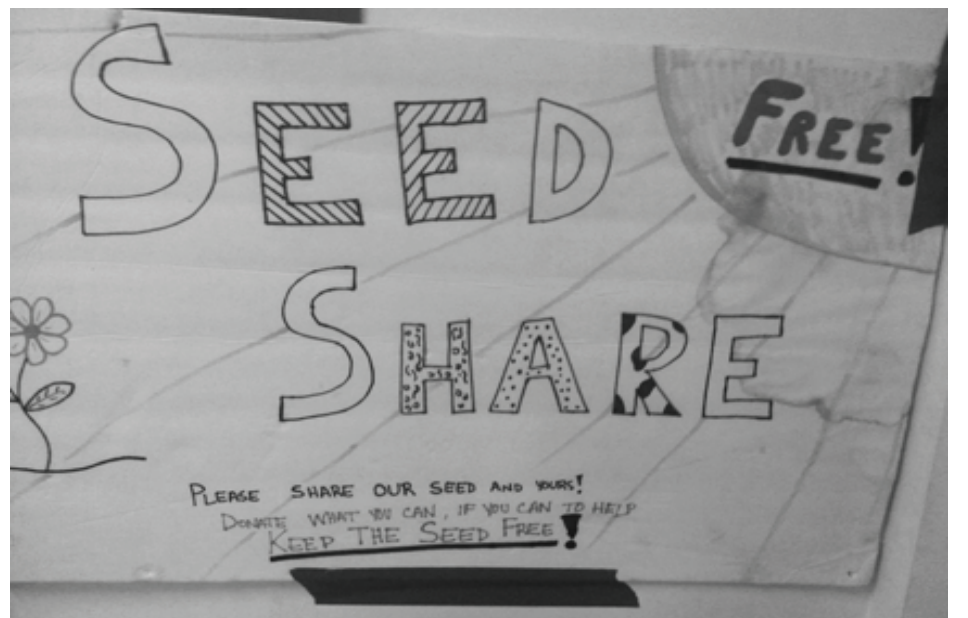 SEED
FREE!
SHARE
PLEASE SHARE OUR SEED AND YOURS!
DONATE WHAT YOU CAN, IF YOU CAN TO HELP
KEEP THE SEED FREE!